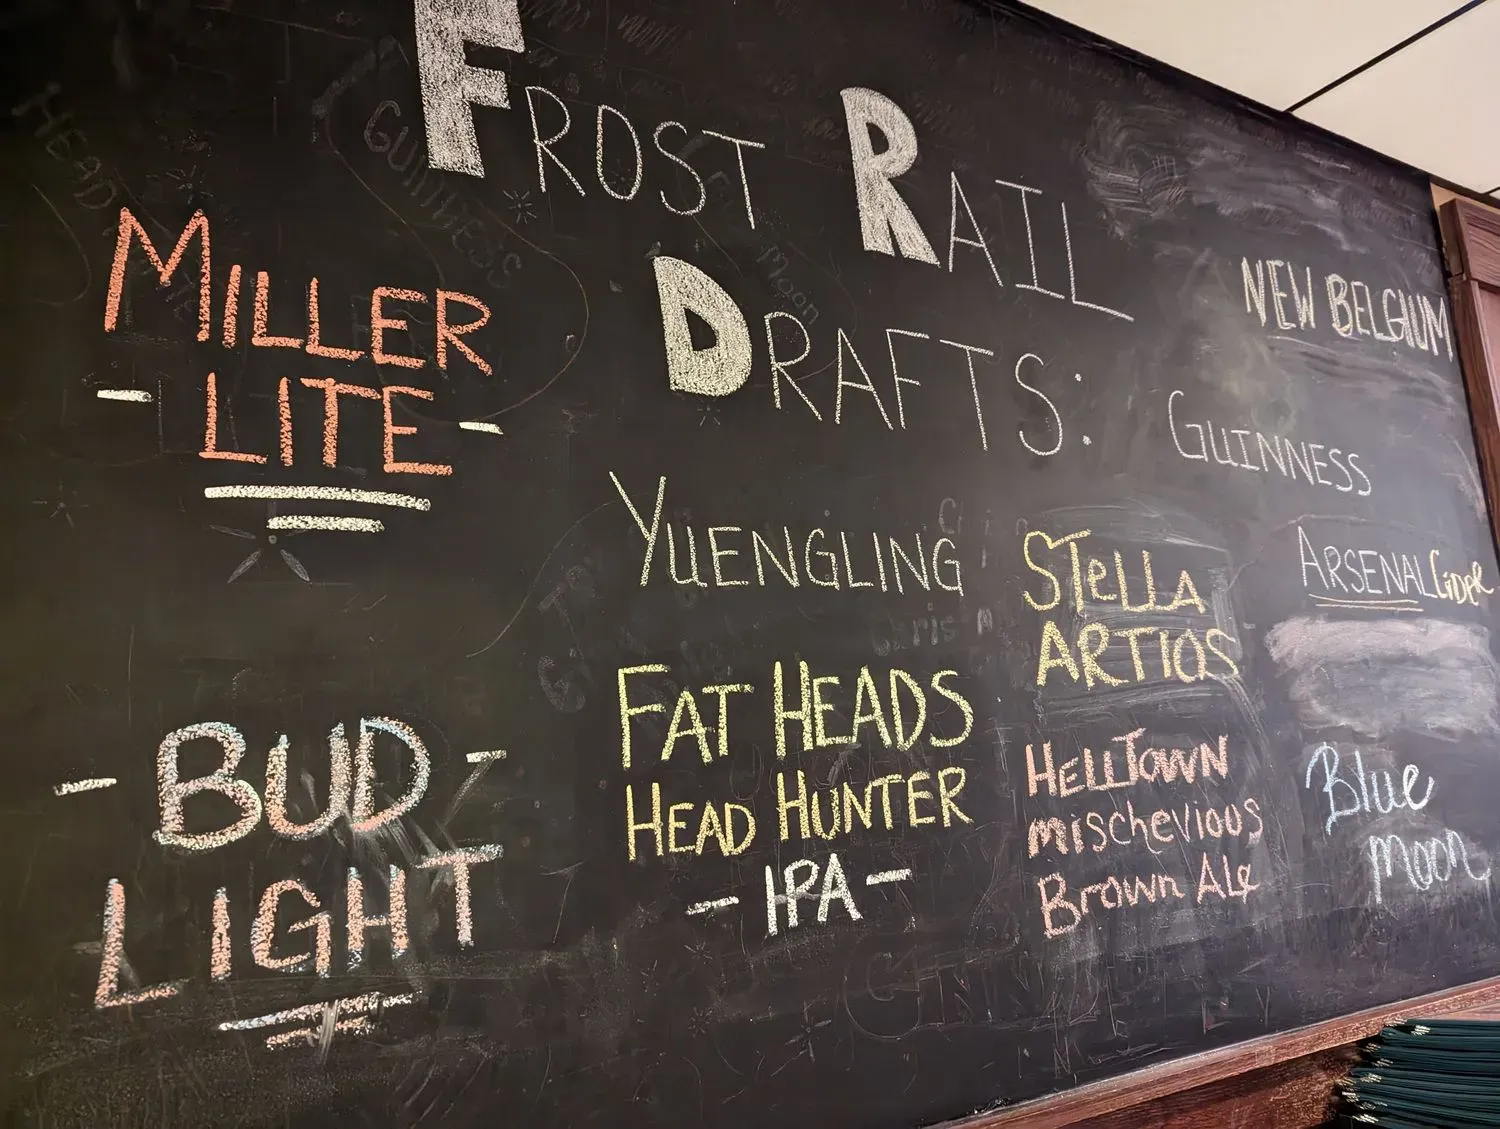 FROST RAIL
DRAFTS:
MILLER
- LITE -
- BUD -
LIGHT
YUENGLING
FAT HEADS
HEAD HUNTER
- IPA -
STELLA
ARTIOS
HELLTOWN
MISCHEVIOUS
BROWN ALE
NEW BELGIUM
GUINNESS
ARSENAL CIDER
Blue
Moon